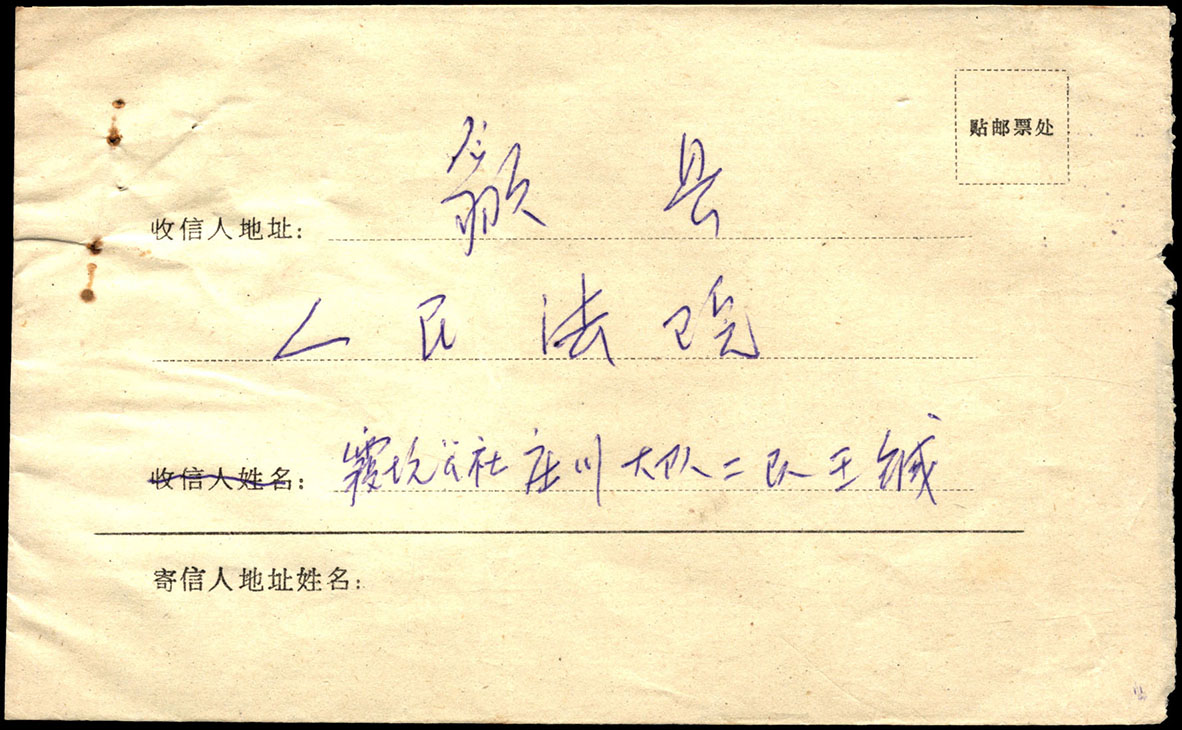 贴邮票处
收信人地址: 歙县
人民法院
收信人姓名: 霞坑公社庄川大队二队王缄
寄信人地址姓名: